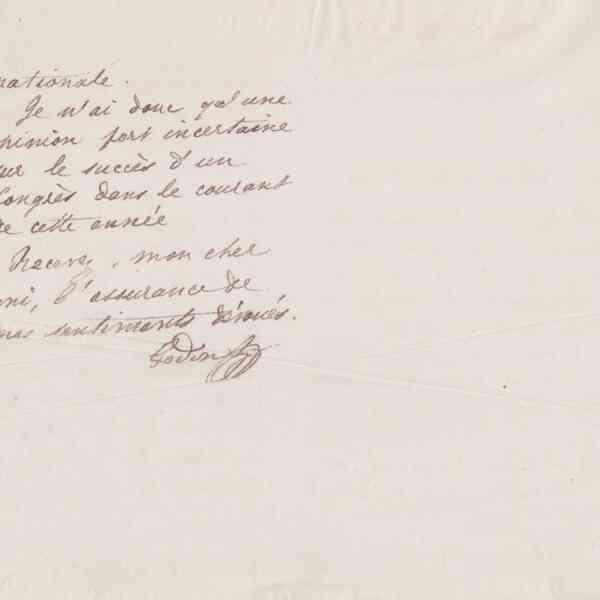 nationale.
Je n'ai donc qu'une
opinion fort incertaine
sur le succès d'un
Congrès dans le courant
de cette année
Recevez, mon cher
ami, l'assurance de
mes sentiments dévoués.
Godin